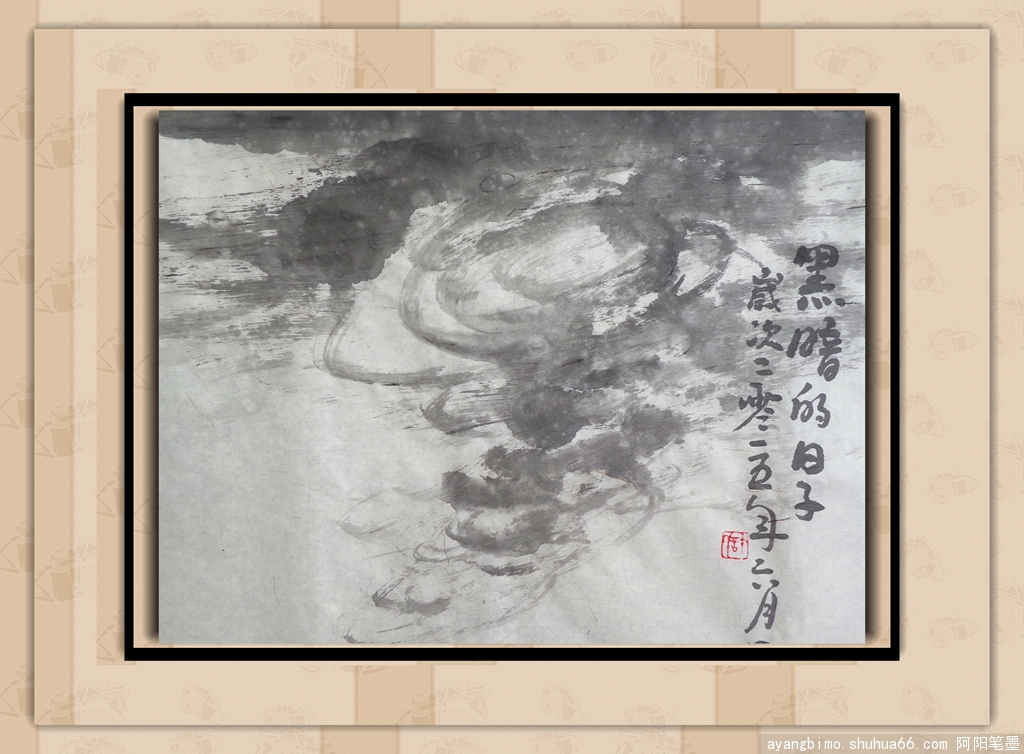 黑暗的日子
歲次二零一五年六月
ayangbimo.shuhua66.com 阿阳笔墨